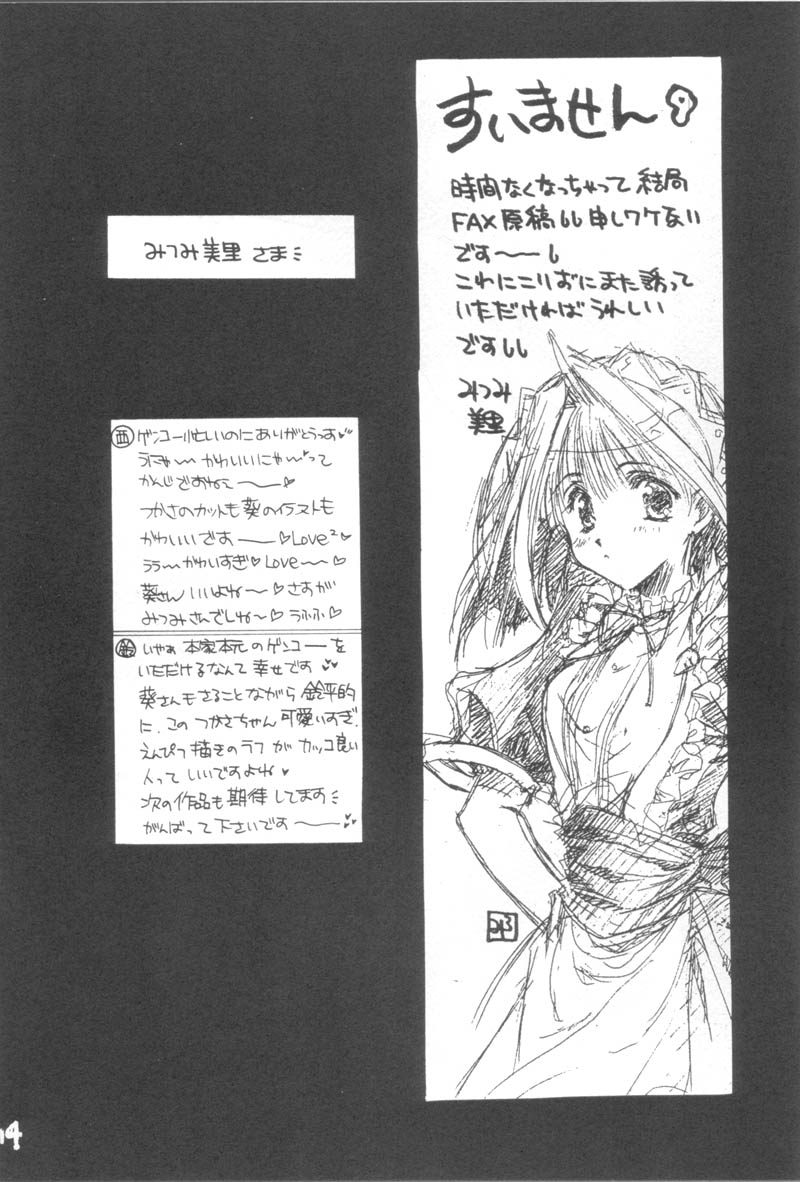 すいません
時間なくなっちゃって結局
FAX原稿しし申しワケない
です〜〜し
これにこりずにまた誘って
いただければうれしい
ですしし
みつみ
美里
みつみ美里 さま
西 ゲンコー忙しいのにありがとうっす♥
うにゃ〜 かわいいにゃ〜って
かんじですねー〜♥
つかさのカットも葵のイラストも
かわいいです〜♡Love²
ララ〜かわいすぎ♥Love〜♡
葵さんいいよね〜♡さすが
みつみさんでしね〜♡うふふ♡
鈴 いやぁ 本家本元のゲンコーを
いただけるなんて幸せです♥♥
葵さんもさることながら 鈴平的
に、この つかさちゃん可愛いすぎ.
えんぴつ描きのラフが カッコ良い
人って いいですよね♥
次の作品も期待してます
がんばって下さいです〜♥♥
14